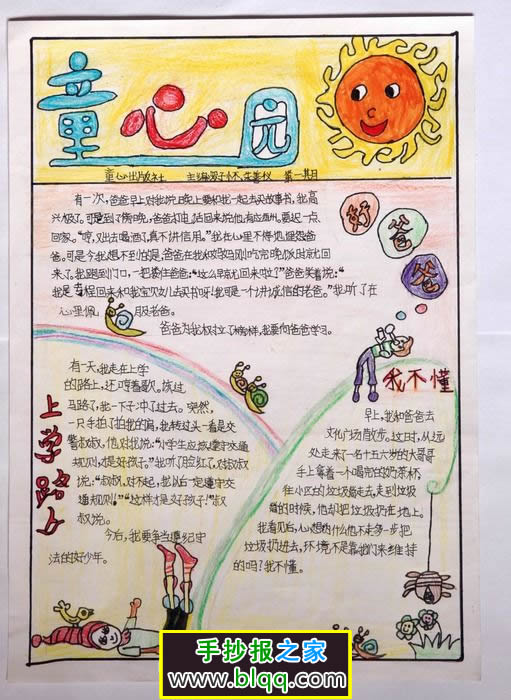 童心园
童心出版社 主编 第一期
好爸爸
有一次,爸爸早上对我说晚上要和我一起去买故事书,我高
兴极了。可是到了傍晚,爸爸打电话回来说他有应酬,要晚一点
回家。“哼,又出去喝酒了,真不讲信用。”我在心里不停地埋怨爸
爸。可是令我想不到的是,爸爸在我和妈妈刚吃完晚饭时就回
来了。我跑到门口,一把搂住爸爸:“这么早就回来啦?”爸爸笑着说:“
我是专程回来和我宝贝女儿去买书呀!我可是一个讲诚信的老爸。”我听了在
心里佩服老爸。
爸爸为我树立了榜样,我要向爸爸学习。
上学路上
有一天,我走在上学
的路上,还哼着歌。该过
马路了,我一下子冲了过去。突然,
一只手拍了拍我的肩,我转过头一看是交
警叔叔,他对我说:“小学生应该遵守交通
规则,才是好孩子。”我听了脸红了,对叔叔
说:“叔叔,对不起,我以后一定遵守交
通规则!”“这样才是好孩子!”叔
叔说。
今后,我更争当遵纪守
法的好少年。
我不懂
早上,我和爸爸去
文化广场散步。这时,从远
处走来了一名十五六岁的大哥哥
手上拿着一个喝完的奶茶杯
往小区的垃圾箱走去,走到垃圾
箱的时候,他却把垃圾扔在地上。
我看见后,心想为什么他不走多一步把
垃圾扔进去,环境不是靠我们来维持
的吗?我不懂。
手抄报之家
www.blqq.com